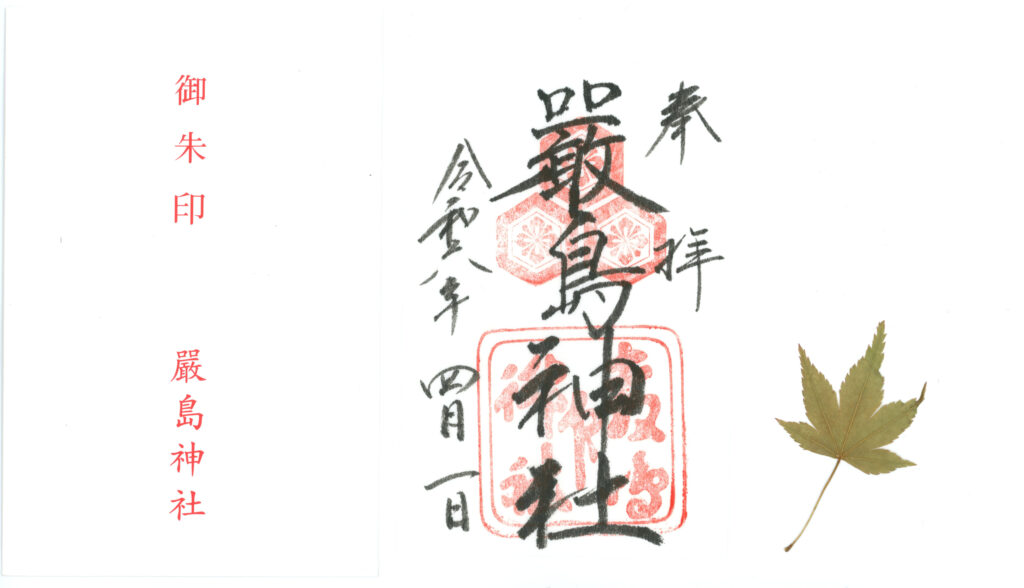 御朱印
嚴島神社
奉拝
嚴島神社
令和八年四月一日